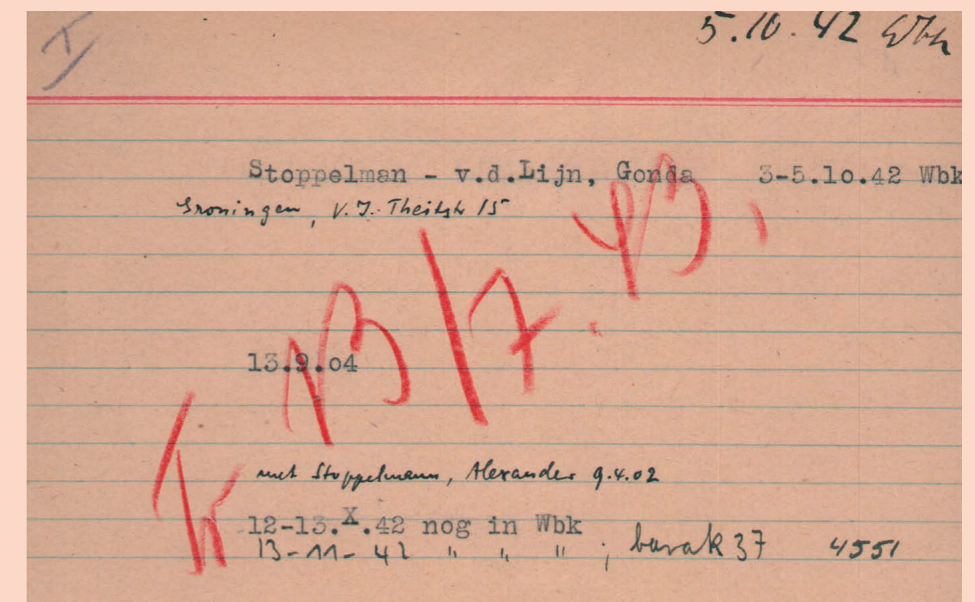 I
5.10.42 Wbk
Stoppelman - v.d.Lijn, Gonda 3-5.10.42 Wbk
Groningen, V.J. Theitstr 15
13.9.04
Tr 13/7.43.
met Stoppelmann, Alexander 9.4.02
12-13.X.42 nog in Wbk
13-11-42 " " " ; barak 37 4551